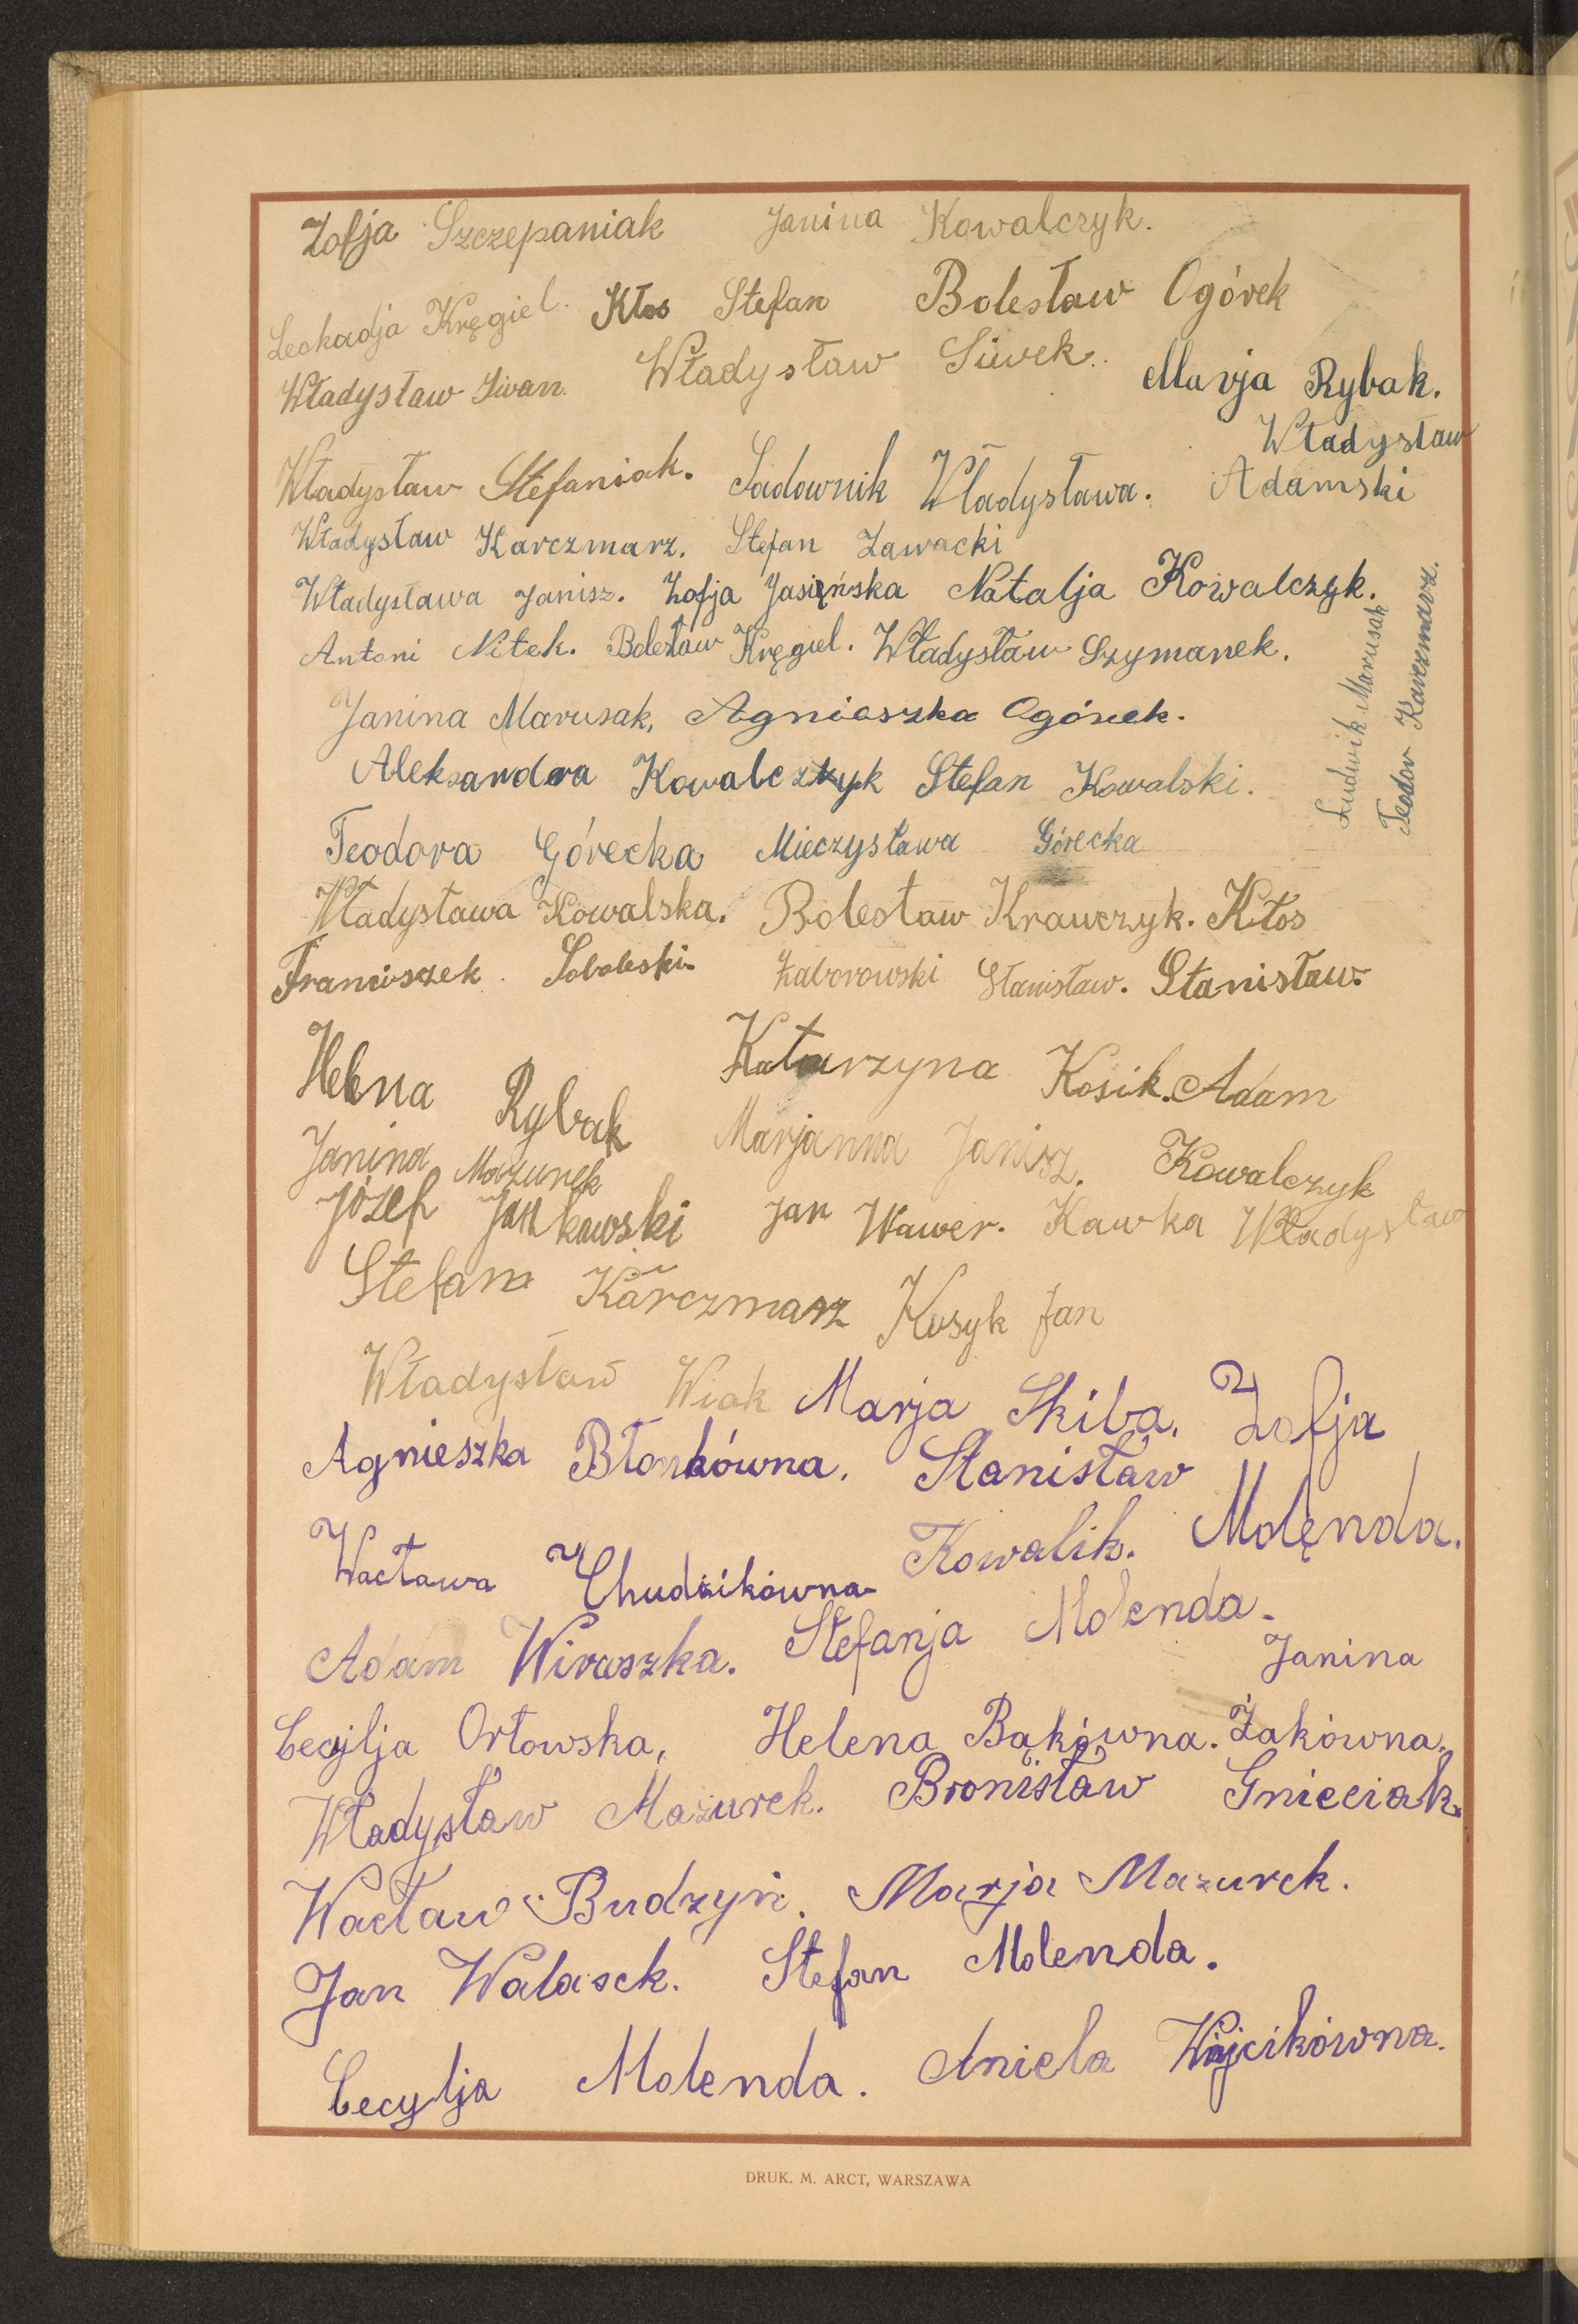 Zofja Szczepaniak Janina Kowalczyk.
Leokadja Kręgiel. Kłos Stefan Bolesław Ogórek
Władysław Iwan. Władysław Siwek. Marja Rybak.
Władysław
Władysław Stefaniak. Sadownik Władysława. Adamski
Władysław Karczmarz. Stefan Zawacki
Władysława Janisz. Zofja Jasięńska Natalja Kowalczyk.
Antoni Nitek. Bolesław Kręgiel. Władysław Szymanek.
Janina Marusak, Agnieszka Ogórek.
Ludwik Marusak
Teodor Karczmarz.
Aleksandra Kowalczyk Stefan Kowalski.
Teodora Górecka Mieczysława Górecka
Władysława Kowalska. Bolesław Krawczyk. Kłos
Franciszek Soboleski Zaborowski Stanisław. Stanisław.
Helena Rybak Katarzyna Kosik. Adam
Janina Mazurek Marjanna Janisz. Kowalczyk
Józef Jankowski Jan Wawer. Kawka Władysław
Stefan Karczmarz Kusyk Jan
Władysław Wiak Marja Skiba. Zofja
Agnieszka Błonkówna. Stanisław
Wacława Chudzikówna Kowalik. Molęnda.
Adam Wiraszka. Stefanja Molenda.
Janina
Cecylja Orłowska, Helena Bąkówna. Żakówna.
Władysław Mazurek. Bronisław Gnieciak.
Wacław Budzyń. Marja Mazurek.
Jan Walasek. Stefan Molenda.
Cecylja Molenda. Aniela Wójcikówna.
DRUK. M. ARCT, WARSZAWA